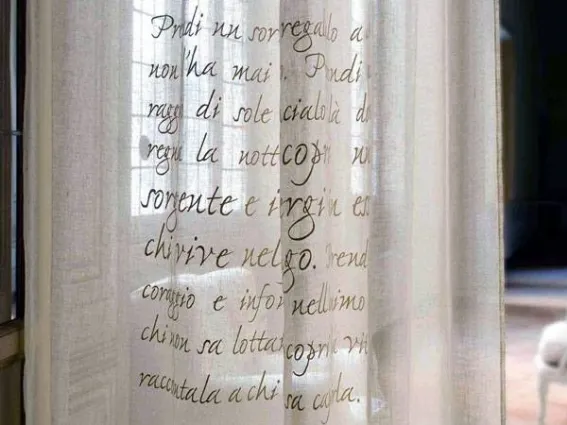 Prndi un sorregallo a
non l'ha mai . Prndi
raggi di sole cialolà d
regna la nott copri un
sorgente e irgin es
chi vive nel go. Prend
coraggio e infor nell'imo
chi non sa lottar copri vi
raccontala a chi sa capla.